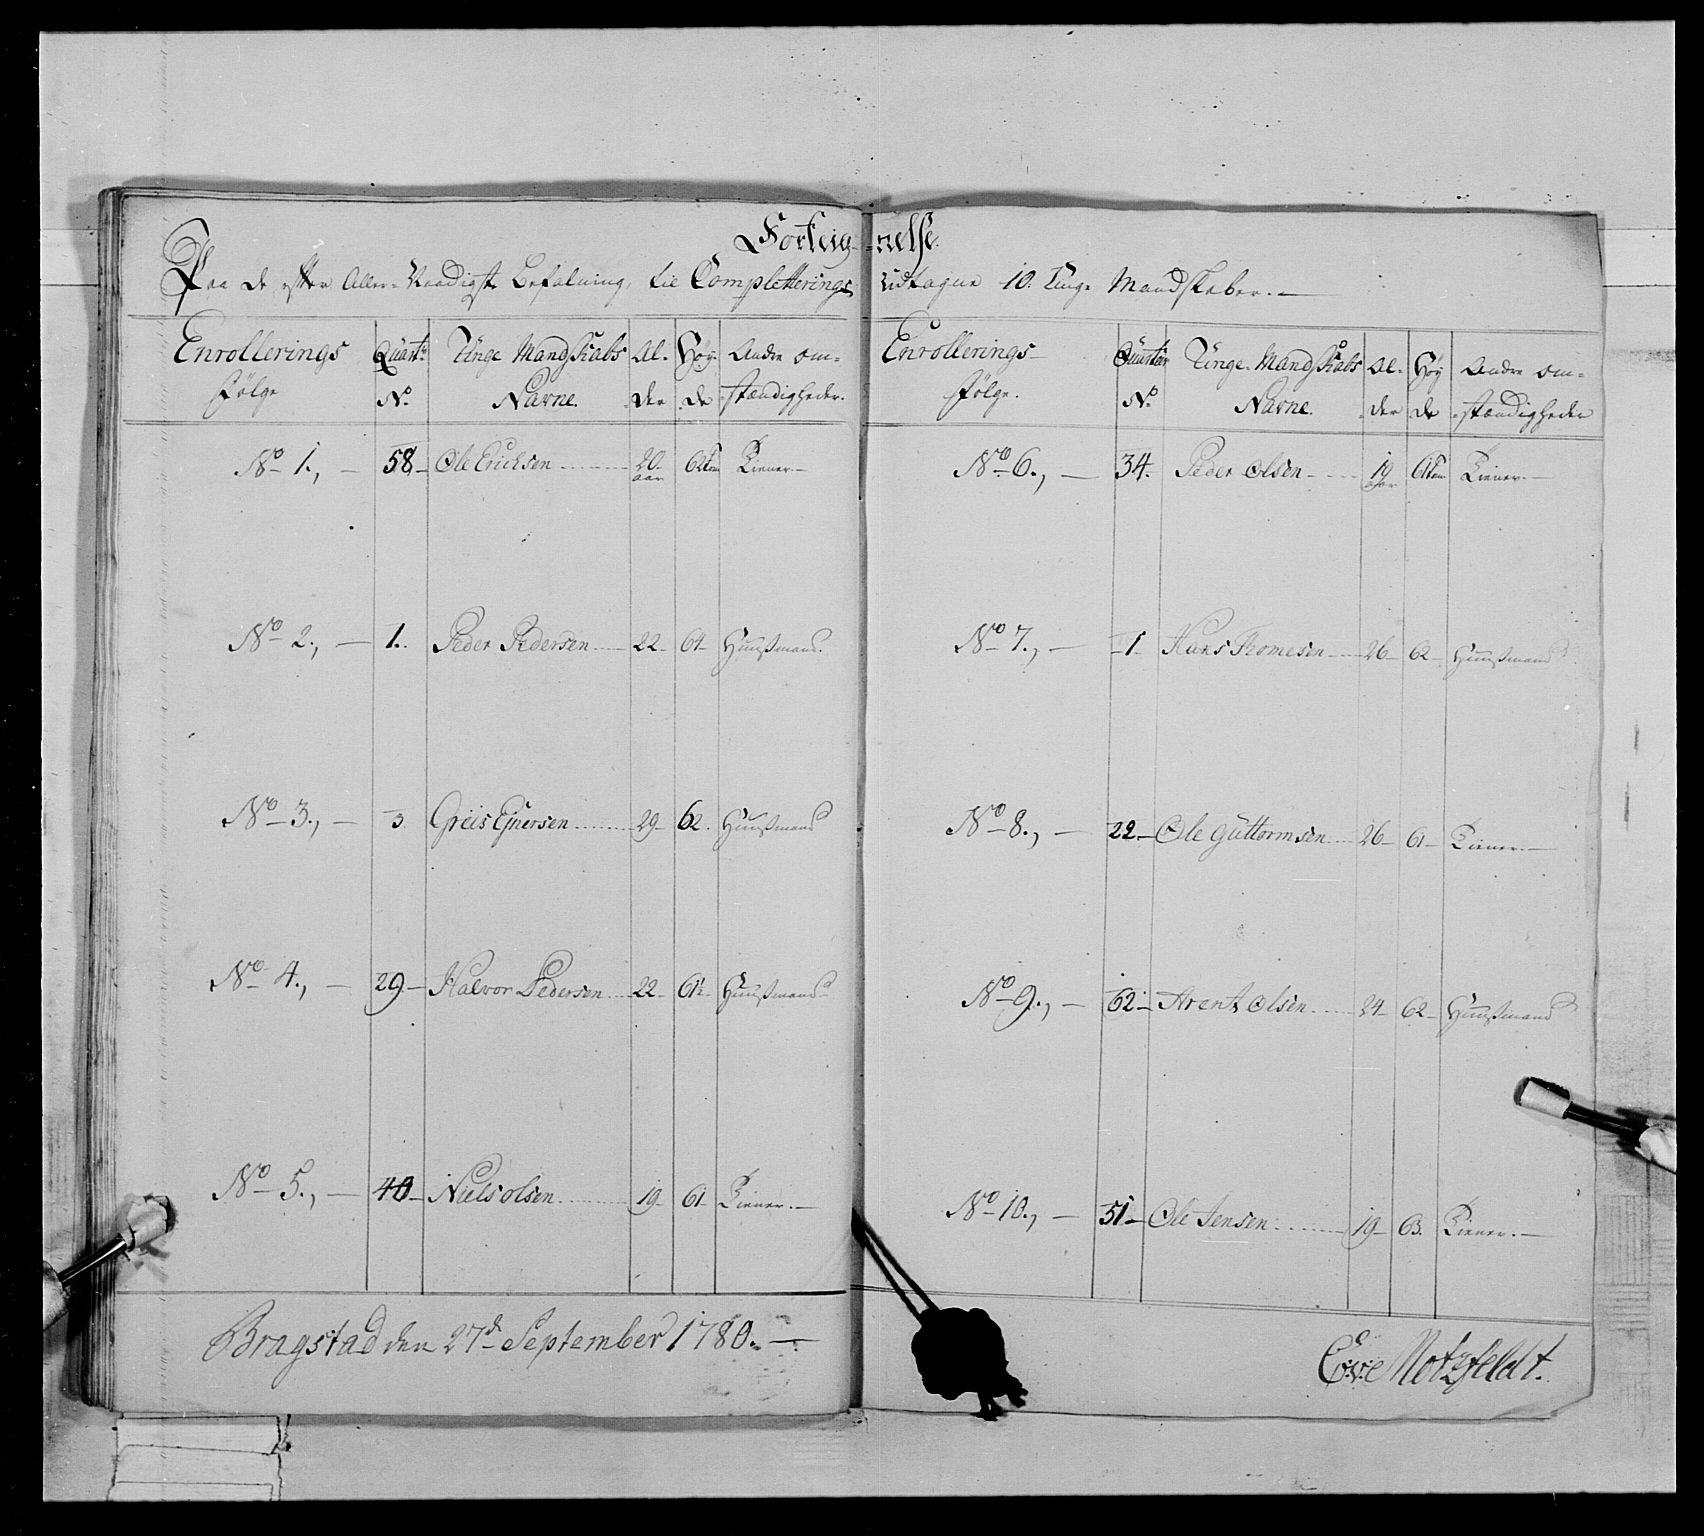 Forteig-nelse.
Paa de efter Aller-Naadigst Befalning, til Completterings udtagne 10. Unge Mandskaber.
Enrollerings Følge Quart. No. Unge Mandskabs Navne. Al-der Høy-de Andre om-stændigheder.
No 1., 58 Ole Ericksen 20 aar Tiener
No 2., 1. Peder Pedersen 22 61 Huusmand.
No 3., 3 Greis Ejnersen 29 62. Huusmand
No 4., 29 Halvor Pedersen 22 61½ Huusmand
No 5., 40 Niels olsen 19 61 Tiener.
Bragstad den 27de September 1780.
Enrollerings Følge. No. Unge Mandskabs Navne. Al-der Høy-de Andre om-stændigheder
No 6., 34. Peder Olsen 19 aar Tiener.
No 7., 1 Hans Thomesen 26 62 Huusmand
No 8., 22 Ole Guttormsen 26 61 Tiener.
No 9., 62 Arent Olsen 24 62 Huusmand
No 10., 51 Ole Jensen 19 63. Tiener.
Motzfeldt.